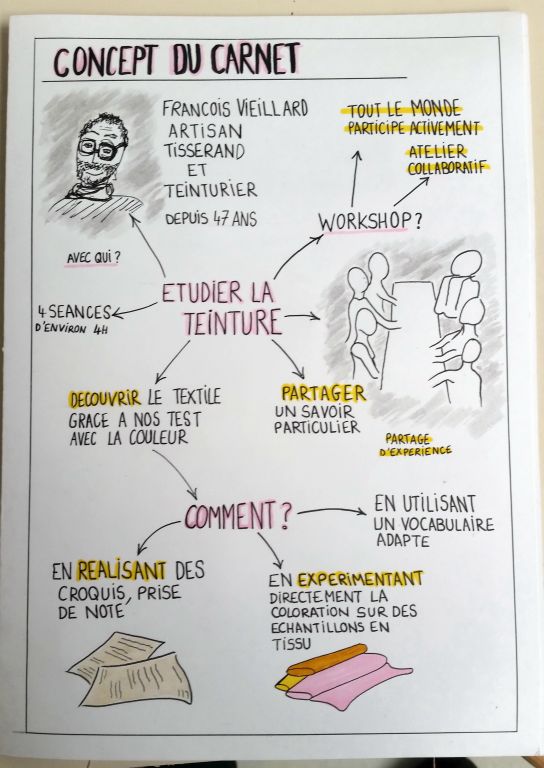 CONCEPT DU CARNET
FRANCOIS VIEILLARD
ARTISAN
TISSERAND
ET
TEINTURIER
DEPUIS 47 ANS
TOUT LE MONDE
PARTICIPE ACTIVEMENT
ATELIER
COLLABORATIF
WORKSHOP ?
AVEC QUI ?
ETUDIER LA
TEINTURE
4 SEANCES
D'ENVIRON 4H
DECOUVRIR LE TEXTILE
GRACE A NOS TEST
AVEC LA COULEUR
PARTAGER
UN SAVOIR
PARTICULIER
PARTAGE
D'EXPERIENCE
COMMENT ?
EN UTILISANT
UN VOCABULAIRE
ADAPTE
EN REALISANT DES
CROQUIS, PRISE
DE NOTE
EN EXPERIMENTANT
DIRECTEMENT LA
COLORATION SUR DES
ECHANTILLONS EN
TISSU